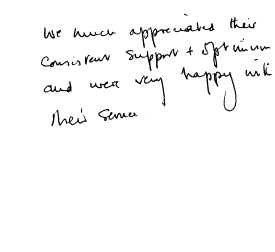 We much appreciated their
consistent support + optimism
and were very happy with
their service